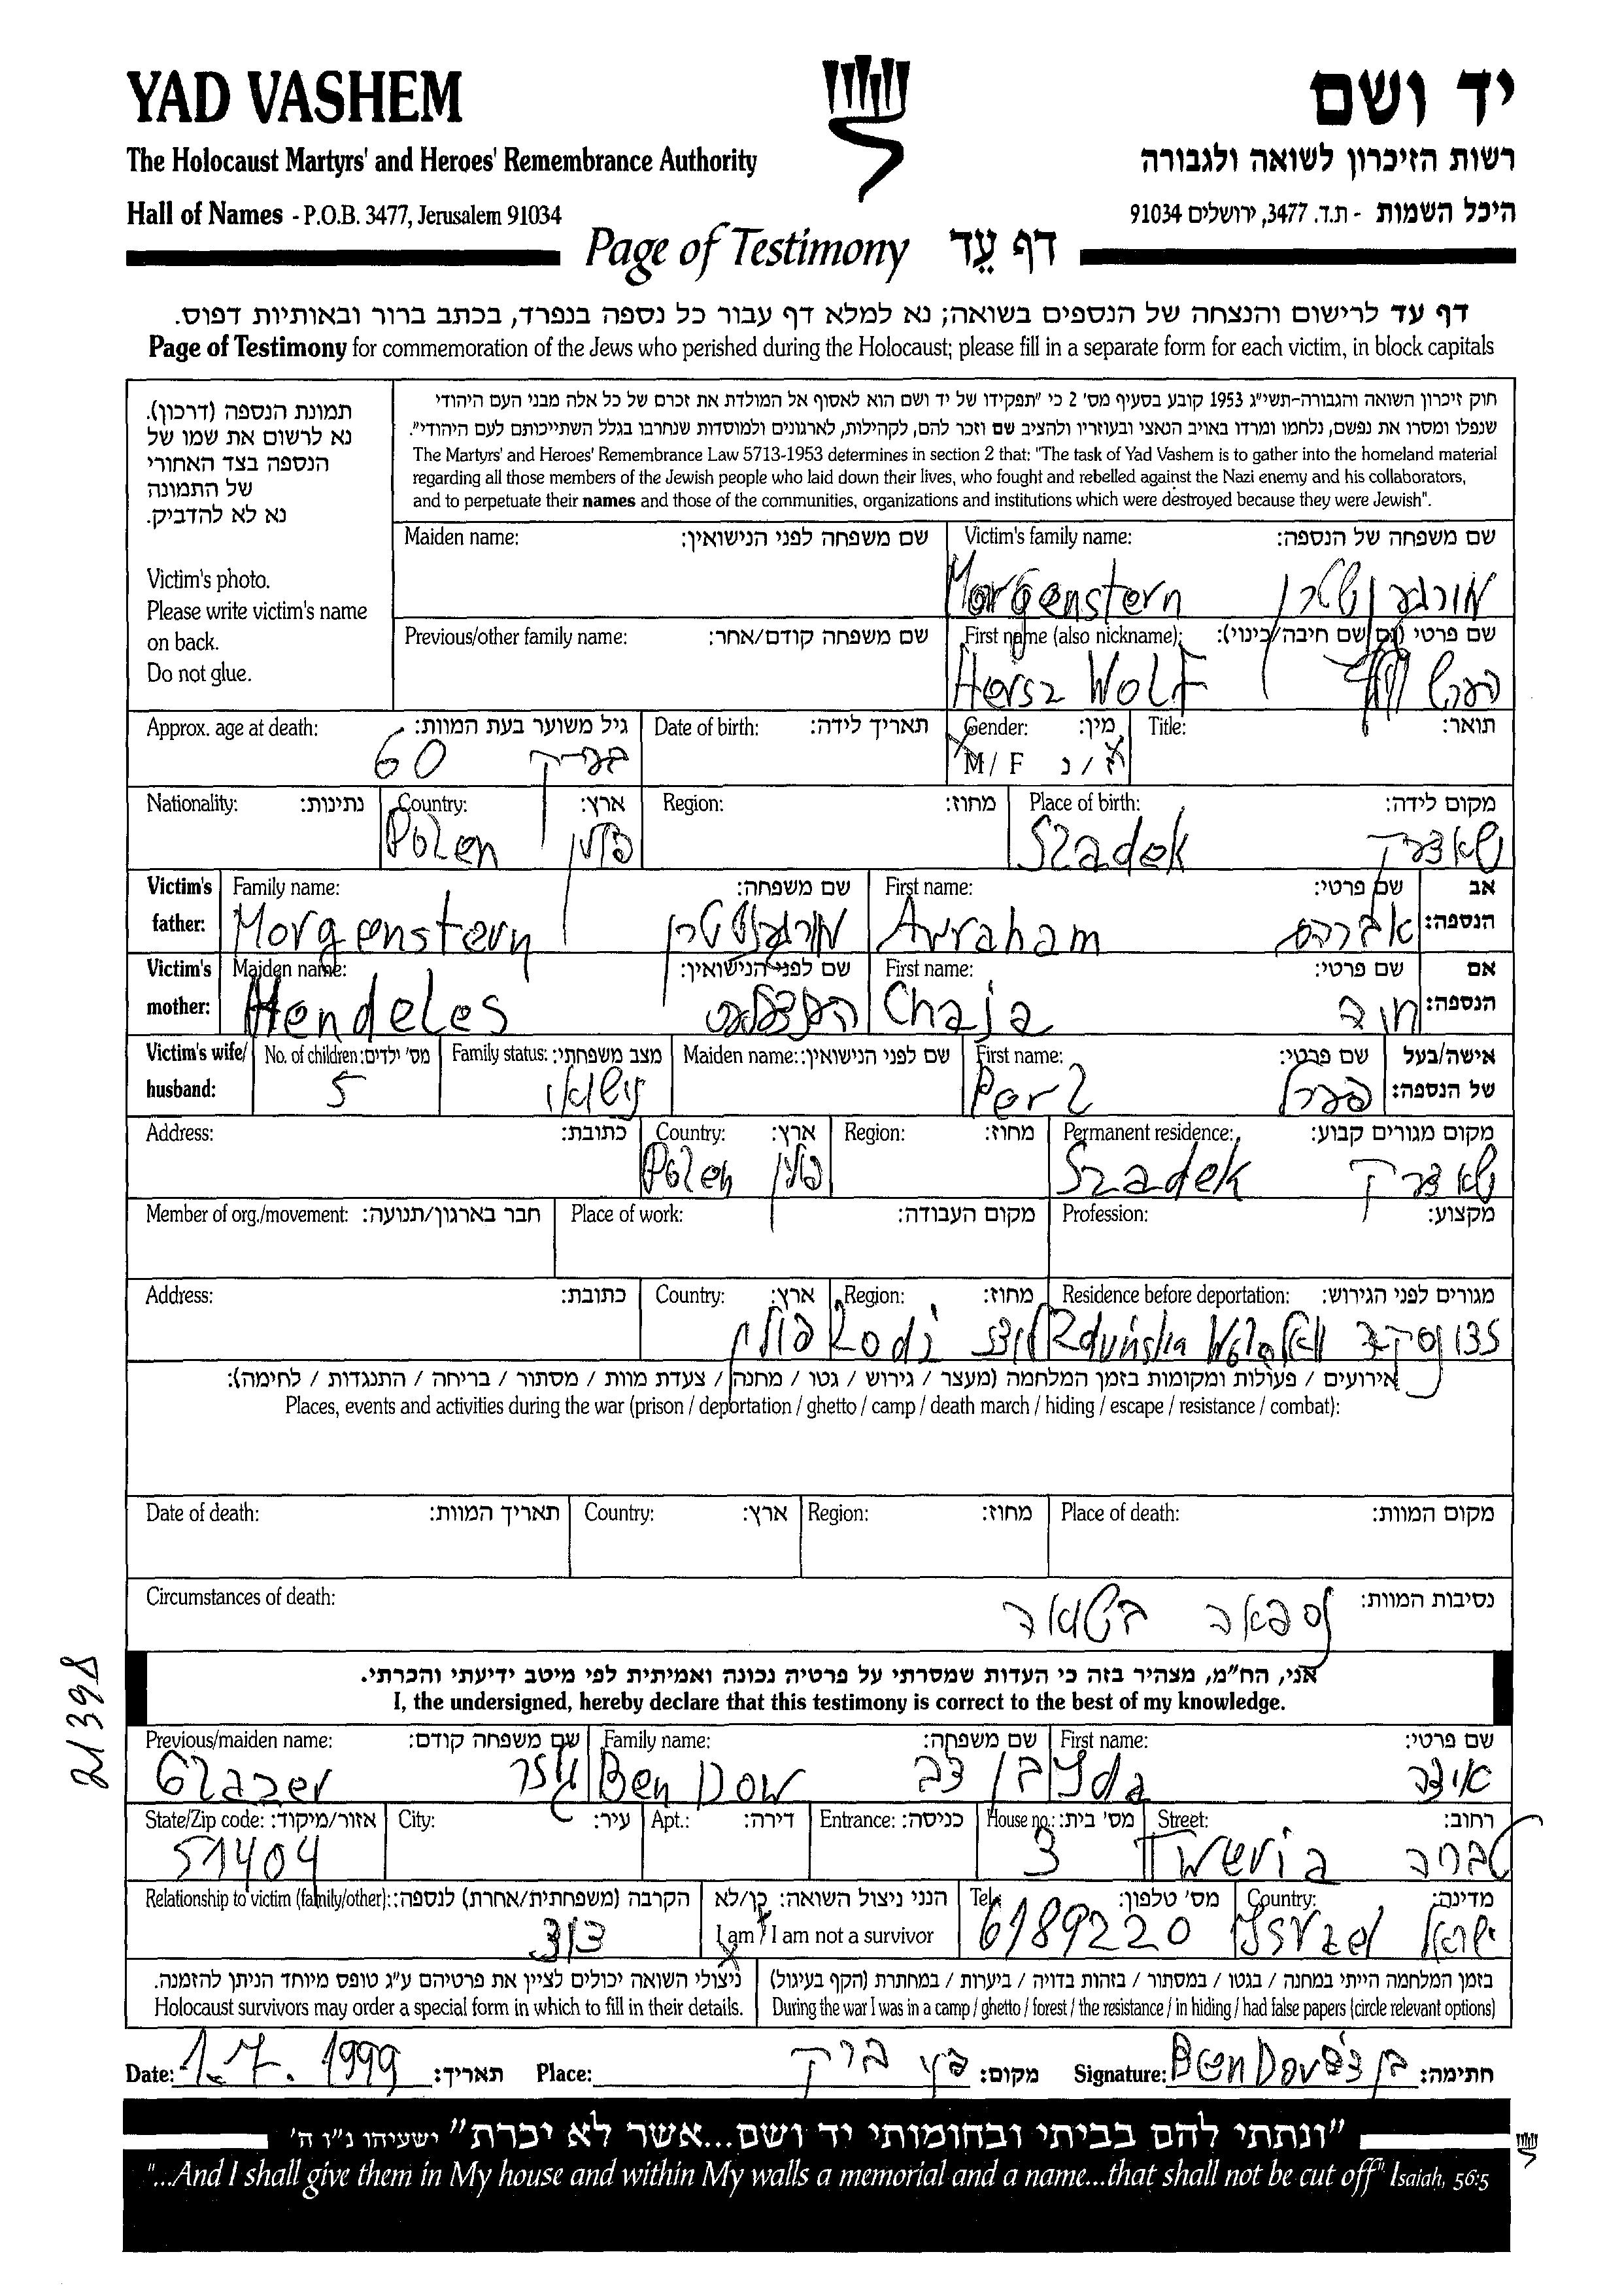 YAD VASHEM
יד ושם
The Holocaust Martyrs' and Heroes' Remembrance Authority
רשות הזיכרון לשואה ולגבורה
Hall of Names - P.O.B. 3477, Jerusalem 91034
היכל השמות - ת.ד. 3477, ירושלים 91034
Page of Testimony דף עֵד
דף עד לרישום והנצחה של הנספים בשואה; נא למלא דף עבור כל נספה בנפרד, בכתב ברור ובאותיות דפוס.
Page of Testimony for commemoration of the Jews who perished during the Holocaust; please fill in a separate form for each victim, in block capitals
תמונת הנספה (דרכון).
נא לרשום את שמו של
הנספה בצד האחורי
של התמונה
נא לא להדביק.
Victim's photo.
Please write victim's name
on back.
Do not glue.
חוק זיכרון השואה והגבורה-תשי"ג 1953 קובע בסעיף מס' 2 כי "תפקידו של יד ושם הוא לאסוף אל המולדת את זכרם של כל אלה מבני העם היהודי
שנפלו ומסרו את נפשם, נלחמו ומרדו באויב הנאצי ובעוזריו ולהציב שם וזכר להם, לקהילות, לארגונים ולמוסדות שנחרבו בגלל השתייכותם לעם היהודי".
The Martyrs' and Heroes' Remembrance Law 5713-1953 determines in section 2 that: "The task of Yad Vashem is to gather into the homeland material
regarding all those members of the Jewish people who laid down their lives, who fought and rebelled against the Nazi enemy and his collaborators,
and to perpetuate their names and those of the communities, organizations and institutions which were destroyed because they were Jewish".
Maiden name: שם משפחה לפני הנישואין:
Victim's family name: שם משפחה של הנספה:
Morgenstern מורגענשטרן
Previous/other family name: שם משפחה קודם/אחר:
First name (also nickname): שם פרטי (גם שם חיבה/כינוי):
Hersz Wolf הערש
Approx. age at death: גיל משוער בעת המוות:
60 בערך
Date of birth: תאריך לידה:
Gender: מין:
M / F ז / נ
Title: תואר:
Nationality: נתינות:
Country: ארץ:
Polen פולין
Region: מחוז:
Place of birth: מקום לידה:
Szadek שאדעק
Victim's father: אב הנספה:
Family name: שם משפחה:
Morgenstern מורגענשטרן
First name: שם פרטי:
Avraham אברהם
Victim's mother: אם הנספה:
Maiden name: שם לפני הנישואין:
Hendeles הענדעלעס
First name: שם פרטי:
Chaja חיה
Victim's wife/ husband: אישה/בעל של הנספה:
No. of children: מס' ילדים:
5
Family status: מצב משפחתי:
נשוי
Maiden name: שם לפני הנישואין:
First name: שם פרטי:
Perl פערל
Address: כתובת:
Country: ארץ:
Polen פולין
Region: מחוז:
Permanent residence: מקום מגורים קבוע:
Szadek שאדעק
Member of org./movement: חבר בארגון/תנועה:
Place of work: מקום העבודה:
Profession: מקצוע:
Address: כתובת:
Country: ארץ:
פולין
Region: מחוז:
Lodz לודז
Residence before deportation: מגורים לפני הגירוש:
Zduńska Wola
אירועים / פעולות ומקומות בזמן המלחמה (מעצר / גירוש / גטו / מחנה / צעדת מוות / מסתור / בריחה / התנגדות / לחימה):
Places, events and activities during the war (prison / deportation / ghetto / camp / death march / hiding / escape / resistance / combat):
Date of death: תאריך המוות:
Country: ארץ:
Region: מחוז:
Place of death: מקום המוות:
Circumstances of death: נסיבות המוות:
נספה בשואה
21398
אני, הח"מ, מצהיר בזה כי העדות שמסרתי על פרטיה נכונה ואמיתית לפי מיטב ידיעתי והכרתי.
I, the undersigned, hereby declare that this testimony is correct to the best of my knowledge.
Previous/maiden name: שם משפחה קודם:
Glazer גלזר
Family name: שם משפחה:
Ben Dow בן דב
First name: שם פרטי:
Ida אידה
State/Zip code: אזור/מיקוד:
51404
City: עיר:
Apt.: דירה:
Entrance: כניסה:
House no.: מס' בית:
3
Street: רחוב:
Tweria טבריה
Relationship to victim (family/other): הקרבה (משפחתית/אחרת) לנספה:
הנני ניצול השואה: כן/לא
I am / I am not a survivor
Tel: מס' טלפון:
6189220
Country: מדינה:
Israel ישראל
ניצולי השואה יכולים לציין את פרטיהם ע"ג טופס מיוחד הניתן להזמנה.
Holocaust survivors may order a special form in which to fill in their details.
בזמן המלחמה הייתי במחנה / בגטו / במסתור / בזהות בדויה / ביערות / במחתרת (הקף בעיגול)
During the war I was in a camp / ghetto / forest / the resistance / in hiding / had false papers (circle relevant options)
Date: 1.7. 1999 תאריך: Place: בני ברק מקום: Signature: Ben Dov חתימה:
"ונתתי להם בביתי ובחומותי יד ושם...אשר לא יכרת" ישעיהו נ"ו ה'
"...And I shall give them in My house and within My walls a memorial and a name...that shall not be cut off" Isaiah, 56:5